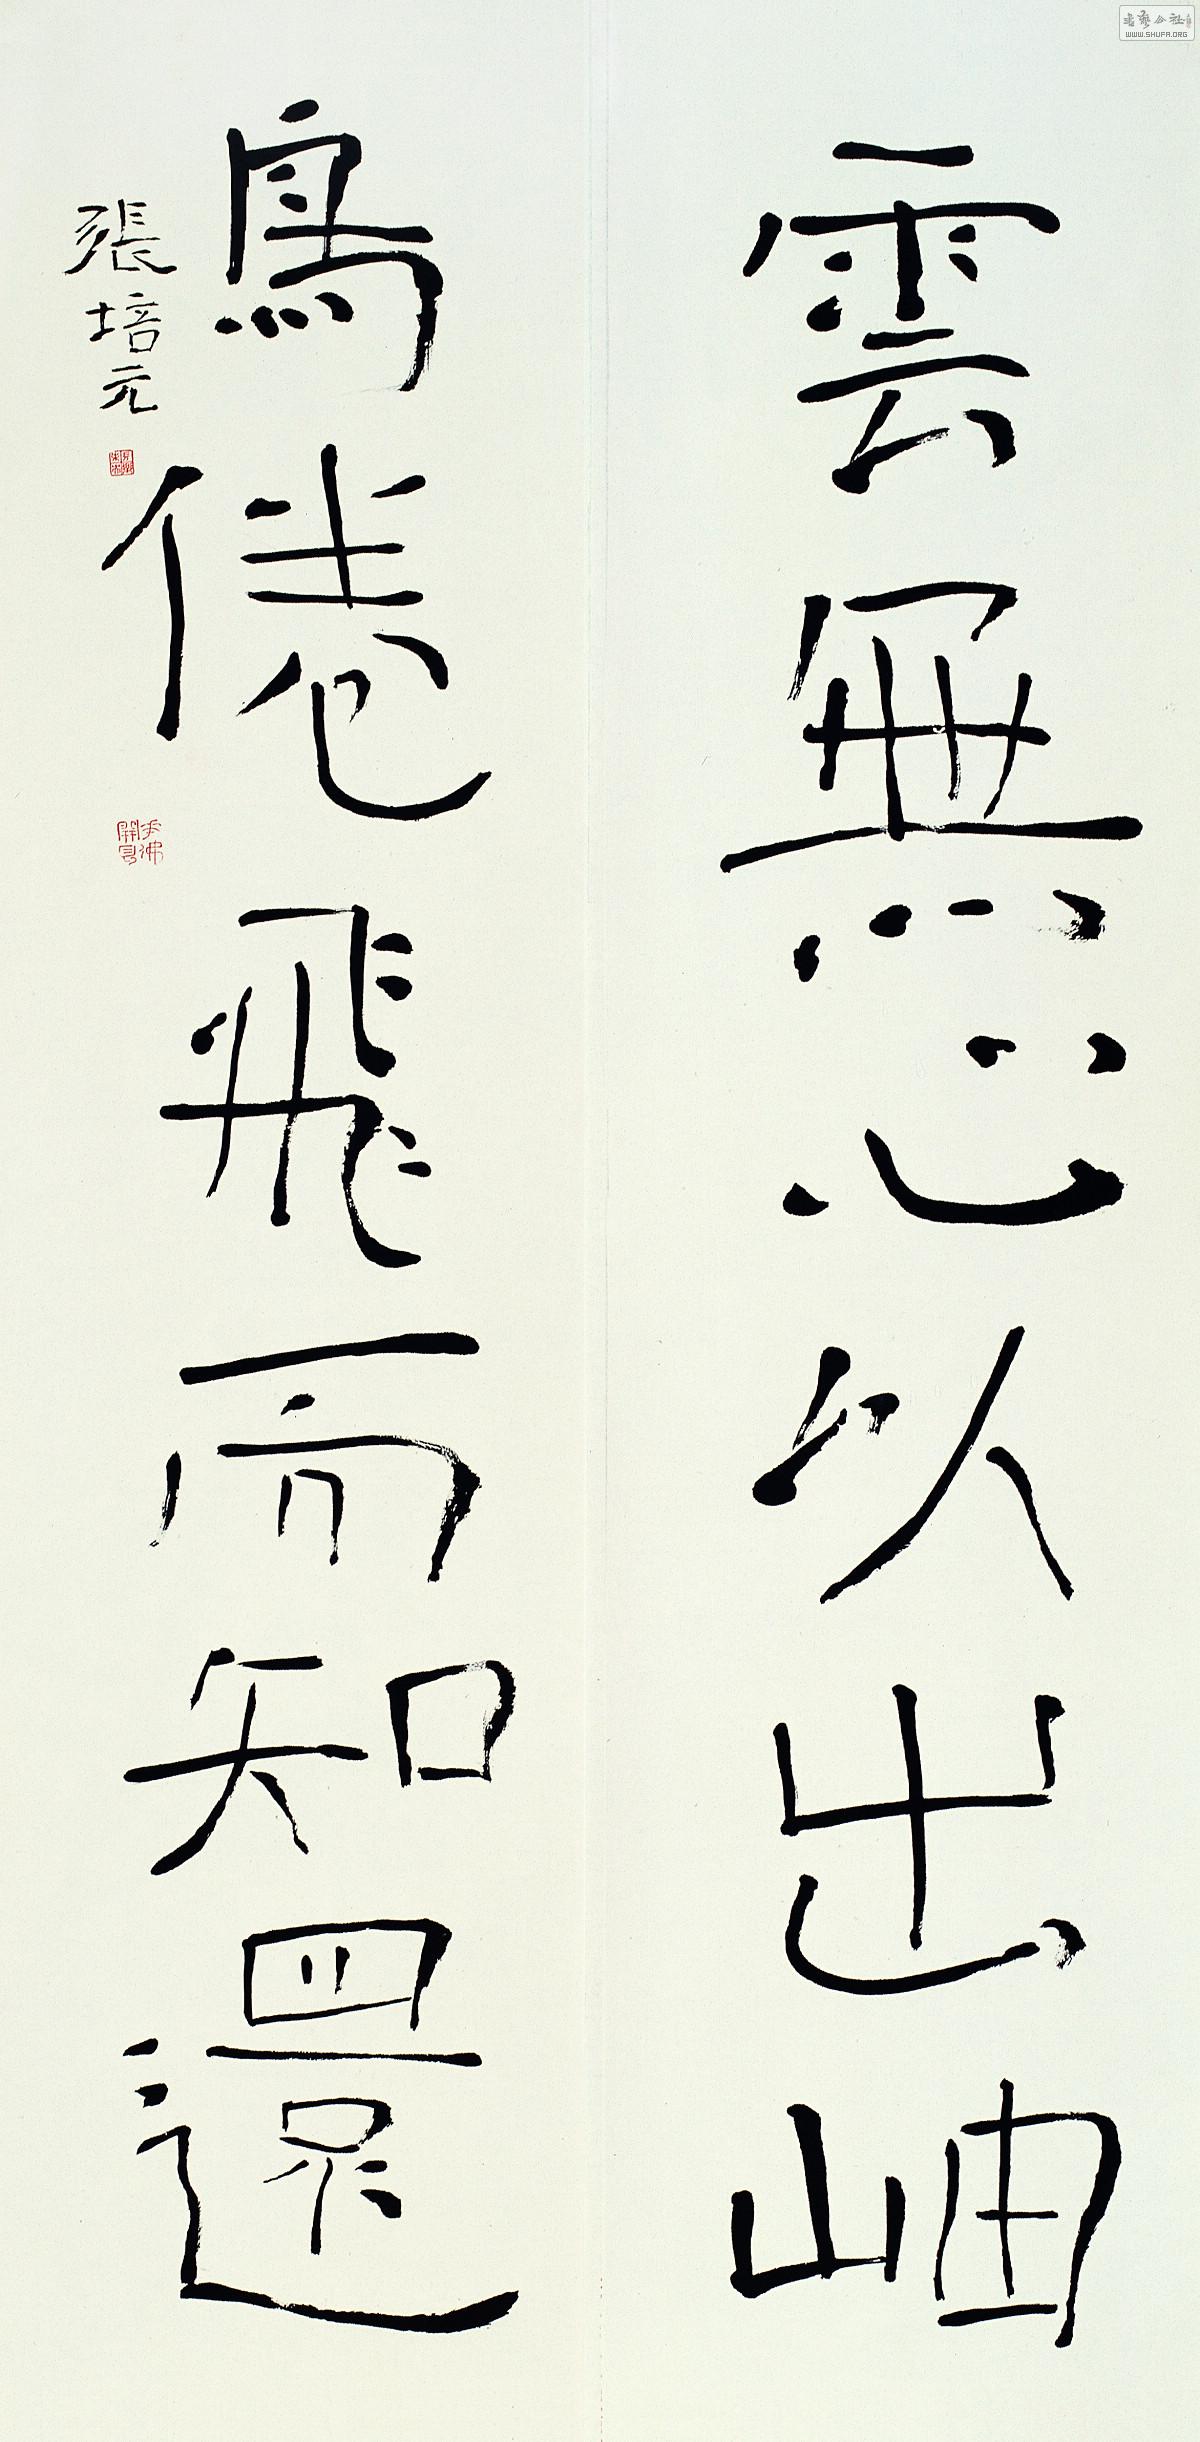 雲無心以出岫
鳥倦飛而知還
張培元
書藝公社
WWW.SHUFA.ORG